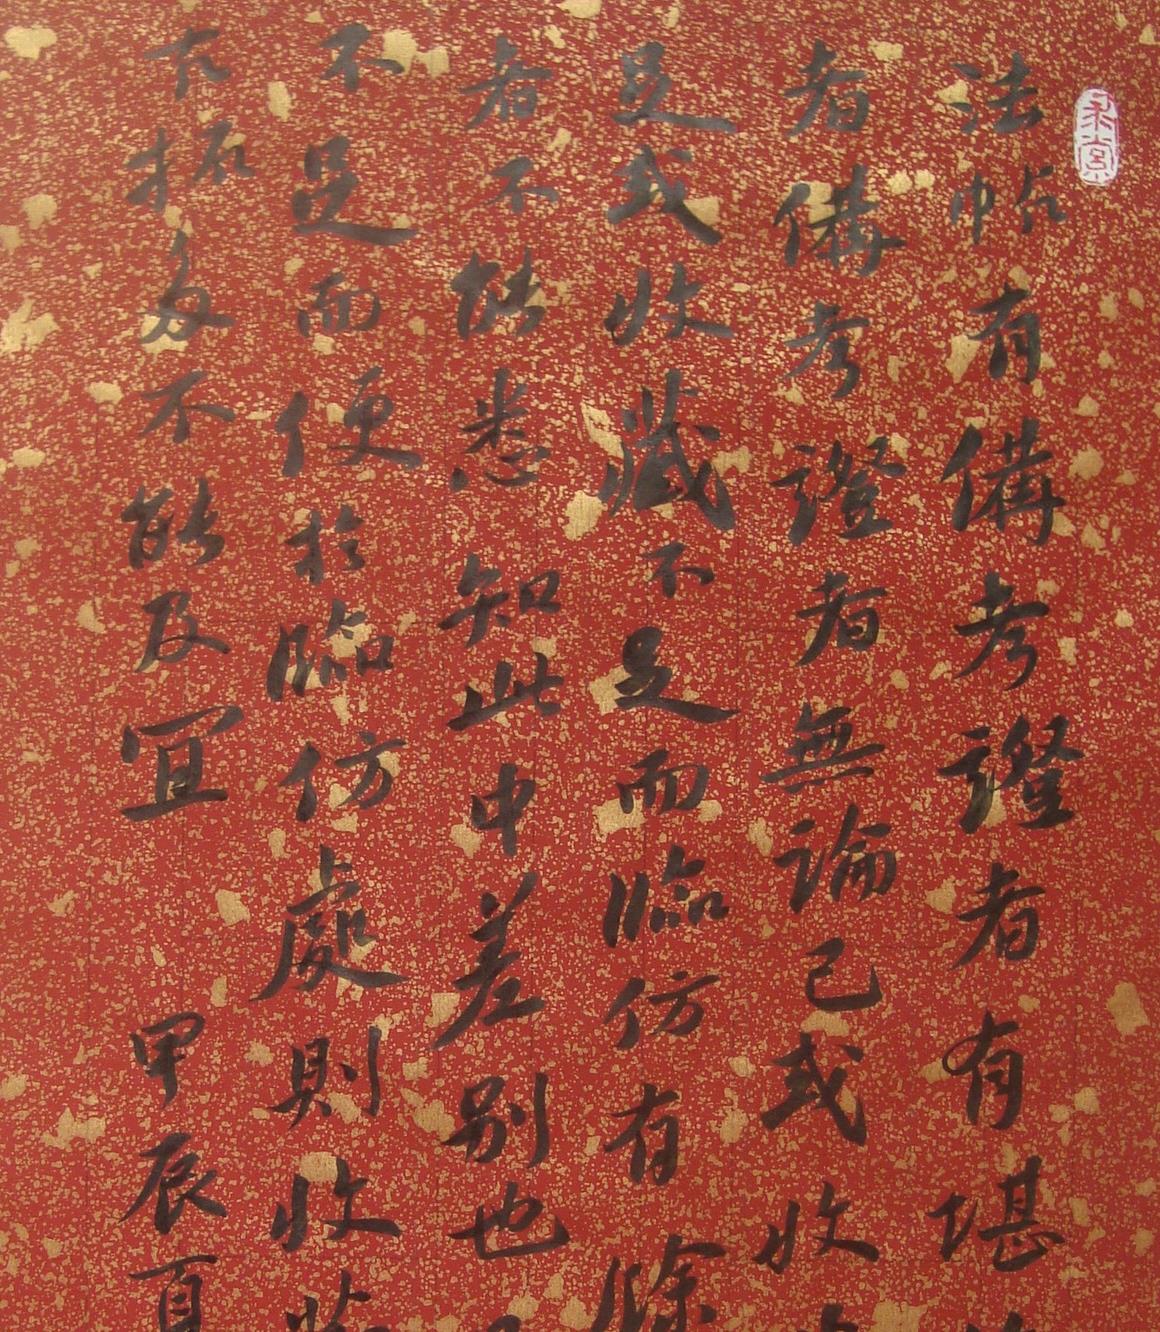 法帖有備考證者有堪
者備考證者無論已或收
足或收藏不足而臨仿有餘
者不能悉知此中差別也
不足而便於臨仿處則收
下拓多不能及宜 甲辰夏